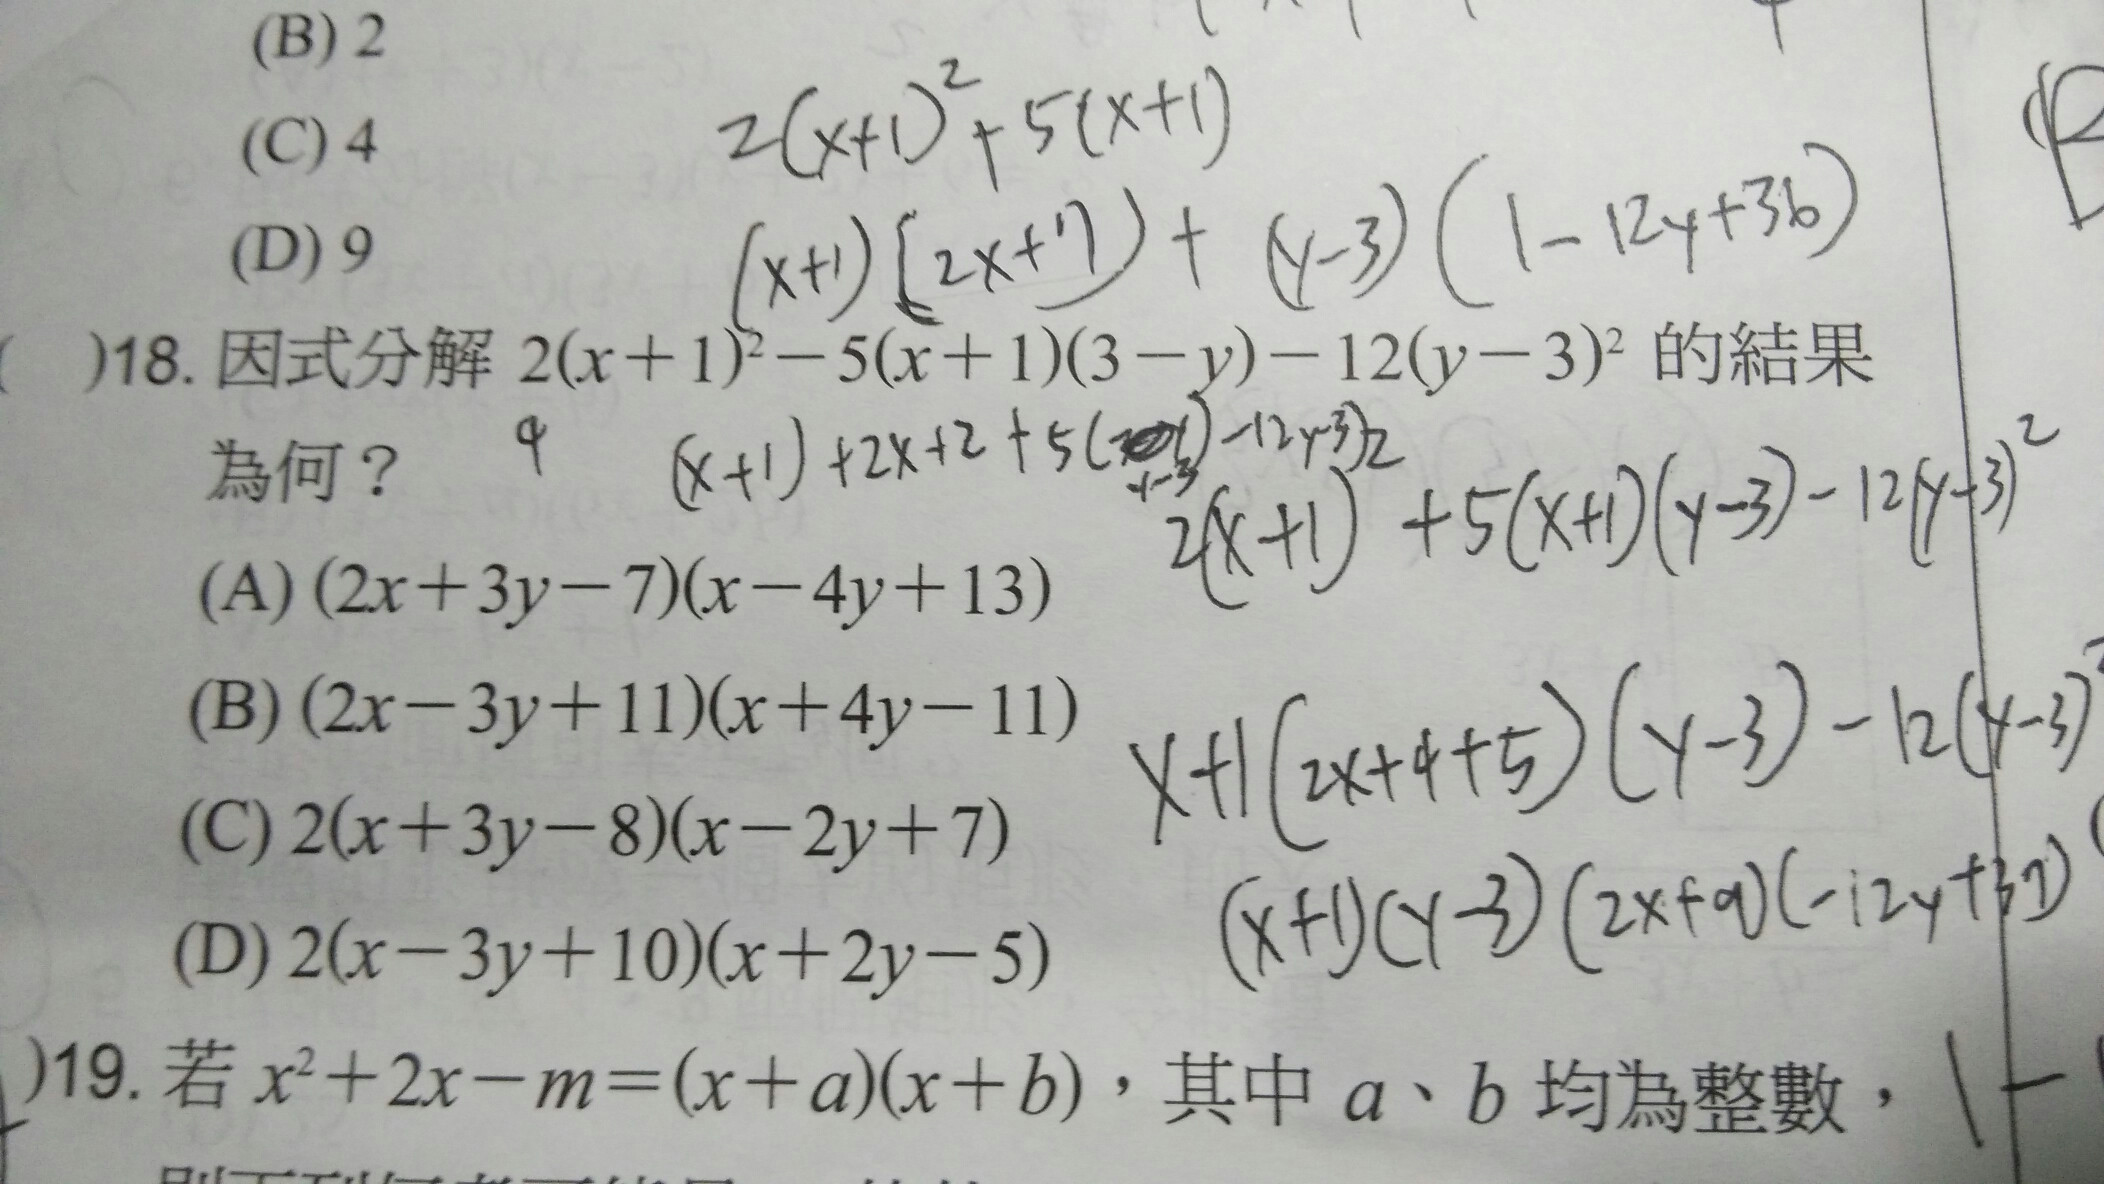 (B) 2
(C) 4
2(x+1)²+5(x+1)
(D) 9
(x+1)(2x+7)+(y-3)(1-12y+36)
)18. 因式分解 2(x+1)²-5(x+1)(3-y)-12(y-3)² 的結果
為何?
(x+1)+2x+2+5(
y-3
)-12y-3)2
2(x+1)+5(x+1)(y-3)-12(y-3)²
(A) (2x+3y-7)(x-4y+13)
(B) (2x-3y+11)(x+4y-11)
x+1(2x+4+5)(y-3)-12(y-3)²
(C) 2(x+3y-8)(x-2y+7)
(x+1)(y-3)(2x+9)(-12y+37)
(D) 2(x-3y+10)(x+2y-5)
)19. 若 x²+2x-m=(x+a)(x+b),其中 a、b 均為整數,